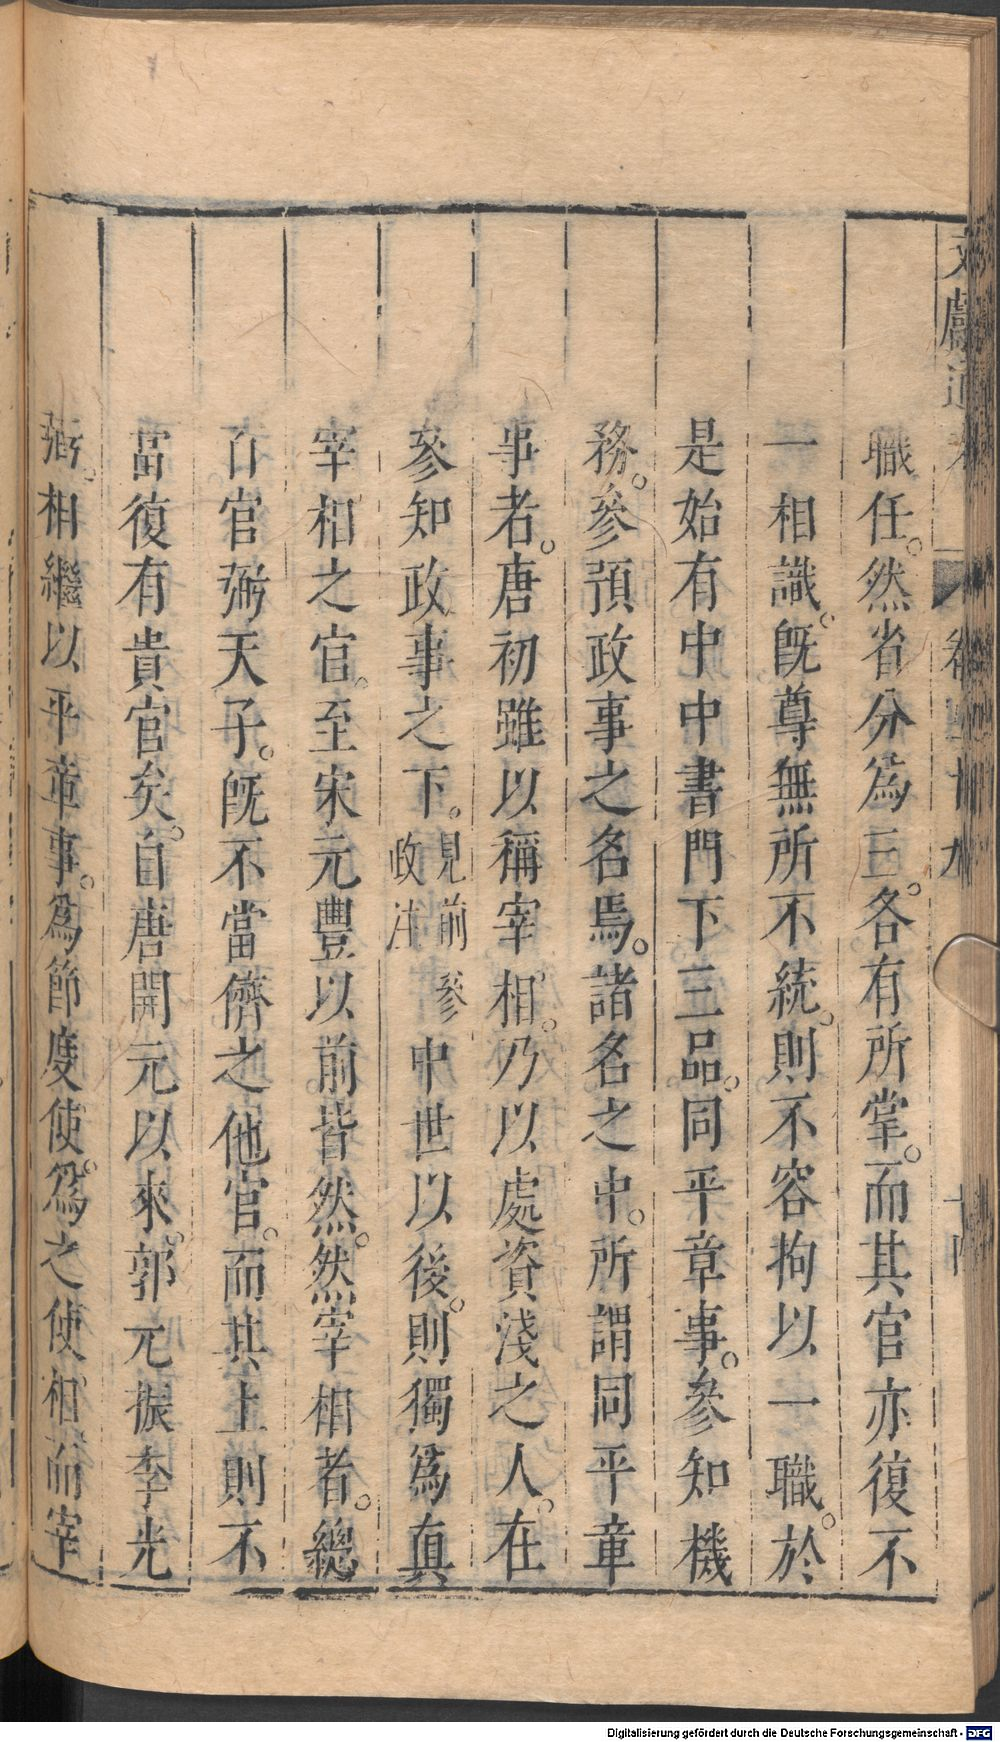 文獻通考
卷四十九
職任然省分為三各有所掌而其官亦復不
一相識既尊無所不統則不容拘以一職於
是始有中中書門下三品同平章事參知機
務參預政事之名焉諸名之中所謂同平章
事者唐初雖以稱宰相乃以處資淺之人在
參知政事之下見前參政注中世以後則獨為真
宰相之官至宋元豐以前皆然然宰相者總
百官弼天子既不當儕之他官而其上則不
當復有貴官矣自唐開元以來郭元振李光
弼相繼以平章事為節度使為之使相而宰
Digitalisierung gefördert durch die Deutsche Forschungsgemeinschaft - DFG